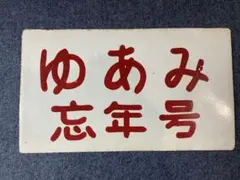 ゆあみ
忘年号